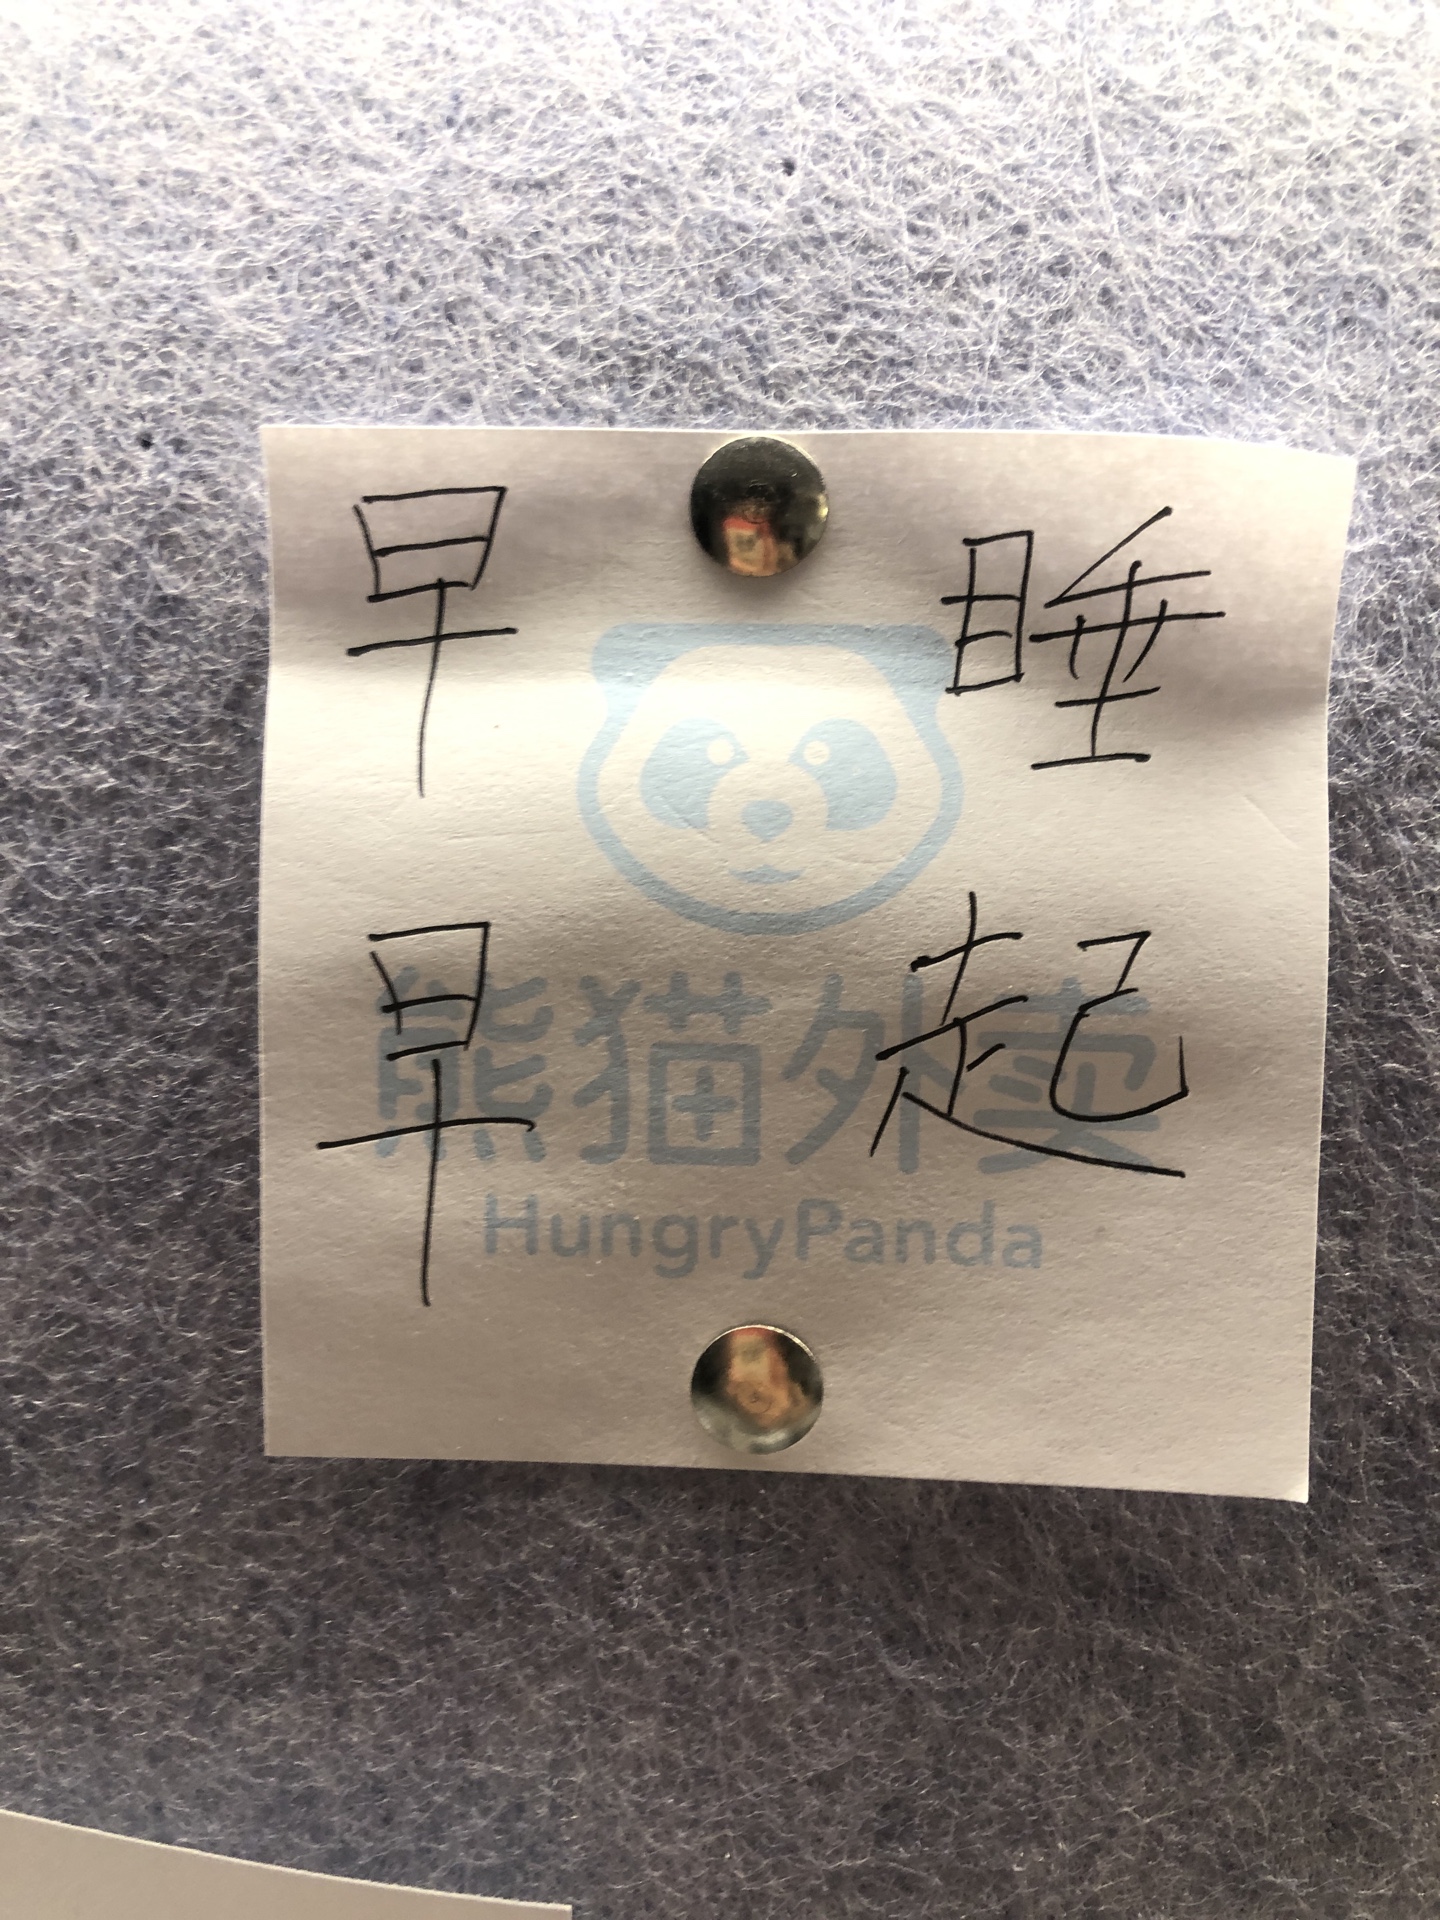 早 睡
早 起
熊猫外卖
HungryPanda